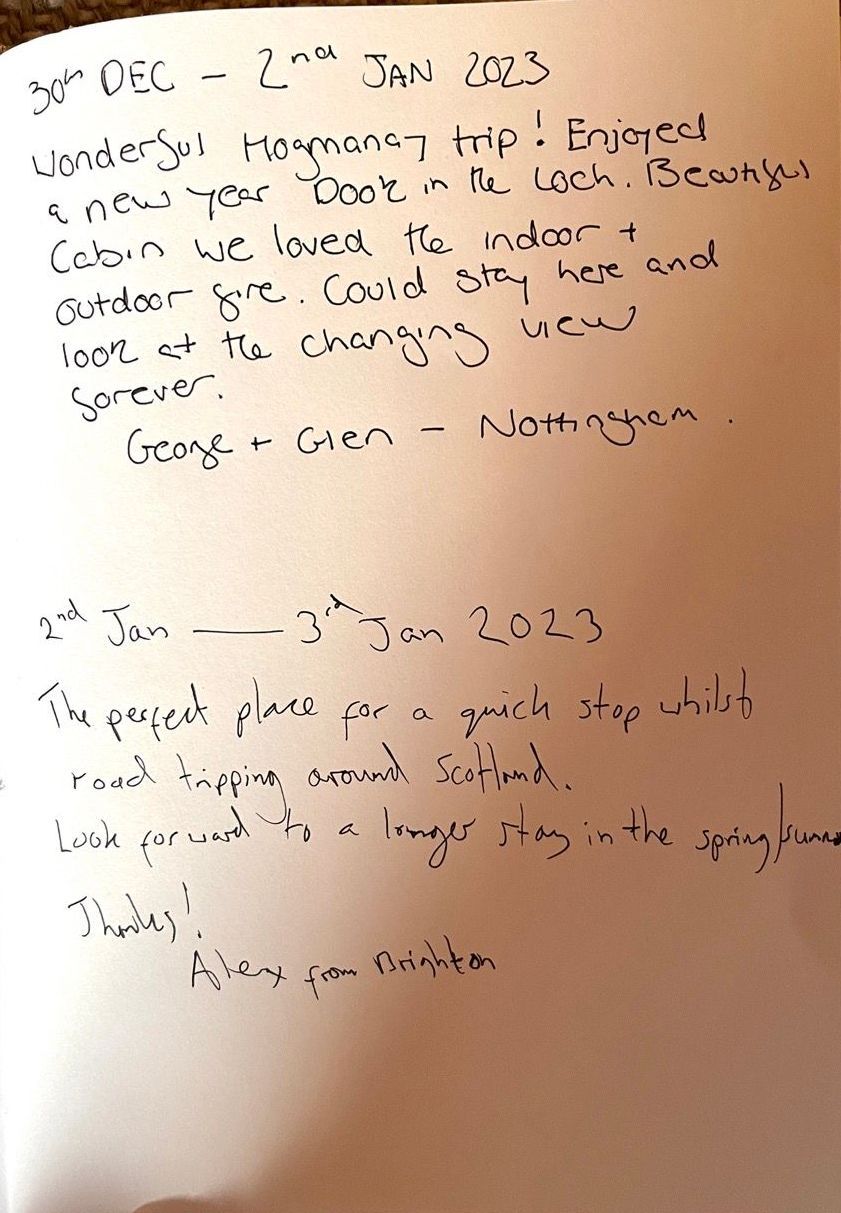 30th DEC - 2nd JAN 2023
Wonderful Hogmanay trip! Enjoyed
a new year Dook in the Loch. Beautiful
Cabin we loved the indoor +
outdoor fire. Could stay here and
look at the changing view
forever.
George + Glen - Nottingham.
2nd Jan — 3rd Jan 2023
The perfect place for a quick stop whilst
road tripping around Scotland.
Look forward to a longer stay in the spring/
Thanks!
Alex from Brighton